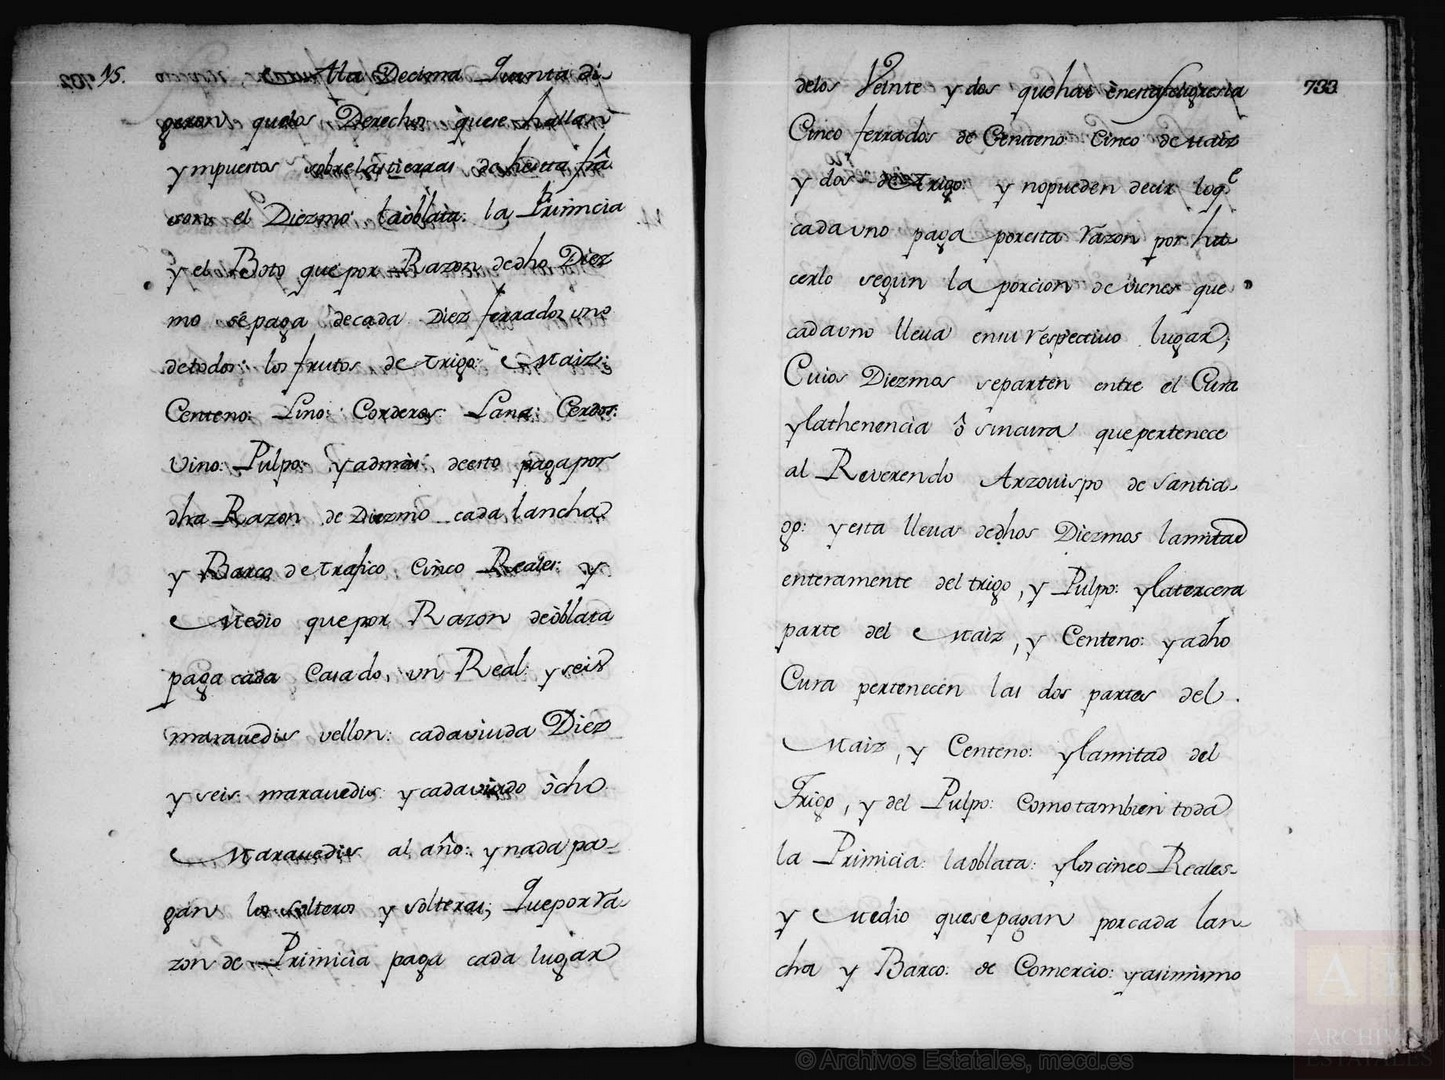 15. Ala Decima Quinta di-
geron quelos Derechos quese hallan
ympuestos sobrelas tierras de hesta frâ
sons el Diezmo: laòblata: la Primicia
y el Boto que por Razon dedho Diez
mo sepaga decada Diez ferrados uno
detodos: los frutos de trigo: Maiz:
Centeno: Lino: Corderos: Lana: Cerdos:
vino: Pulpo: yadmàs: deesto pagapor
dha Razon de Diezmo cada lancha
y Barco detrafico, Cinco Reales: y
Medio quepor Razon deòblata
paga cada Casado, un Real: y seis
maravedis vellon: cadaviuda Diez
y seis maravedis: ycadaviudo òcho
Maravedis al año: ynadapa-
gan los solteros y solteras; Queporra-
zon de Primicia paga cada lugar
733
delos Veinte y dos quehai ènestafeligresia
Cinco ferrados de Centeno: Cinco de maiz
y dos de trigo: y nopueden decir loqe
cadauno paga poresta razon por ha
cerlo segun la porcion de vienes que
cadauno lleva ensu respectivo lugar;
Cuios Diezmos separten entre el Cura
ylathenencia ô sincura quepertenece
al Reverendo Arzovispo de Santia-
go: yesta lleva dedhos Diezmos lamitad
enteramente del trigo, y Pulpo: ylatercera
parte del Maiz, y Centeno: yadho
Cura pertenecen las dos partes del
Maiz, y Centeno: ylamitad del
Trigo, y del Pulpo: Comotambien toda
la Primicia: laòblata: yloscinco Reales-
y Medio quesepagan porcada lan-
cha y Barco: de Comercio: yasimismo
© Archivos Estatales, mecd.es
ARCHIVOS
ESTATALES